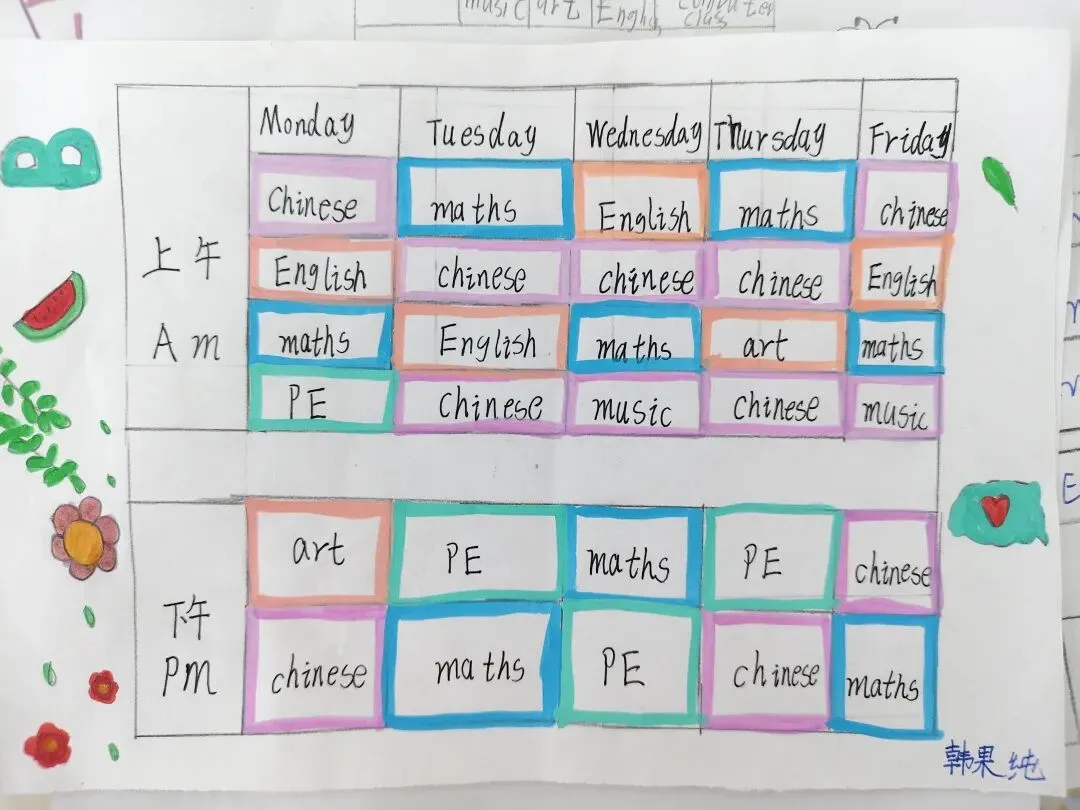 music art Engl computer
class
Monday Tuesday Wednesday Thursday Friday
Chinese maths English maths chinese
上午 English chinese chinese chinese English
Am maths English maths art maths
PE chinese music chinese music
art PE maths PE chinese
下午
PM chinese maths PE chinese maths
韩果纯